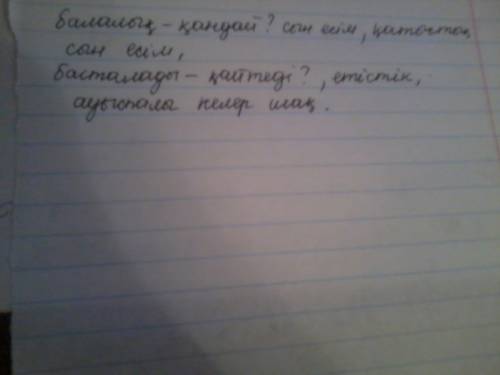 балалық - қандай? сын есім, қатыстық
сын есім,
басталады - қайтеді?, етістік,
ауыспалы келер шақ.